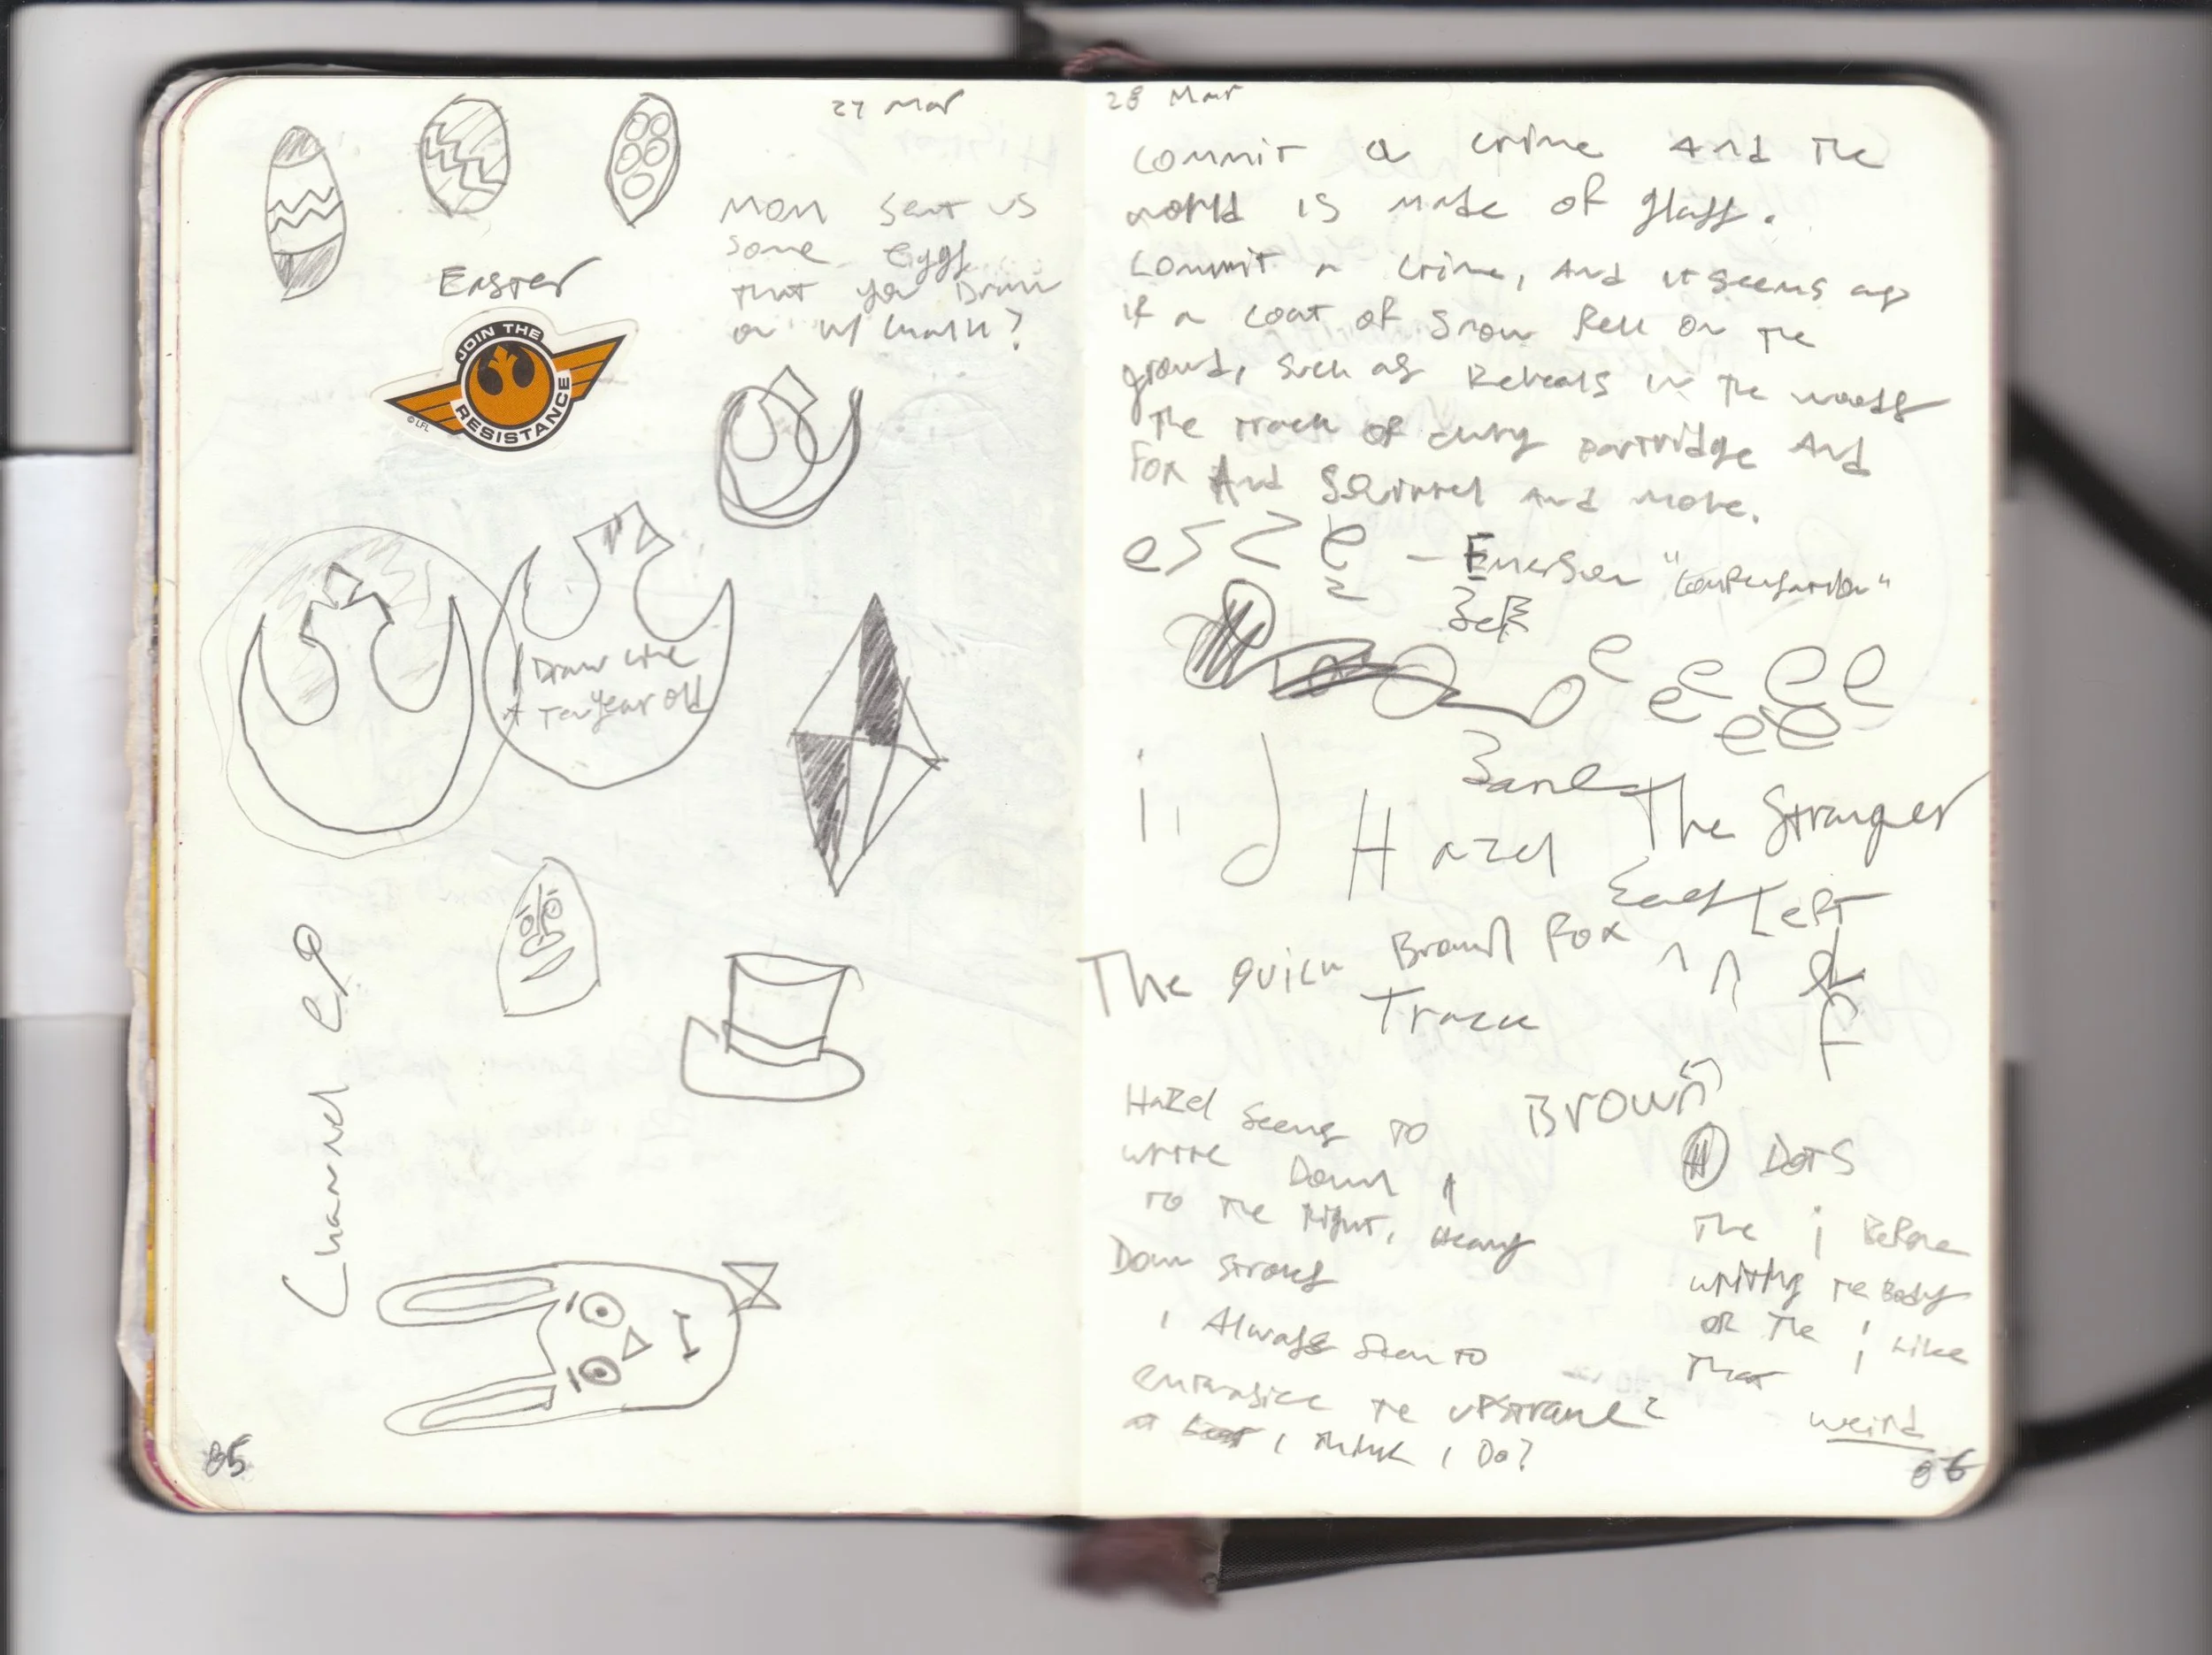 27 Mar
Mom sent us
some eggs
that you draw
on w/ chalk?
Easter
JOIN THE
RESISTANCE
© LFL
I Draw like
A Ten year old
Channel
85
28 Mar
Commit a crime And The
world is made of glass.
Commit a crime, And it seems as
if a coat of snow fell on the
ground, such as Reveals in the woods
The track of every partridge And
Fox And Squirrel And mole.
— Emerson "Compensation"
The Stranger
Hazel
Left
The quick Brown Fox
Track
Brown
Hazel seems to
write Down
to the right, Heavy
Down strong
I Always seem to
emphasize the upstroke?
I think I Do?
H Dots
The i Before
writing the Body
of The i Like
That
weird
86